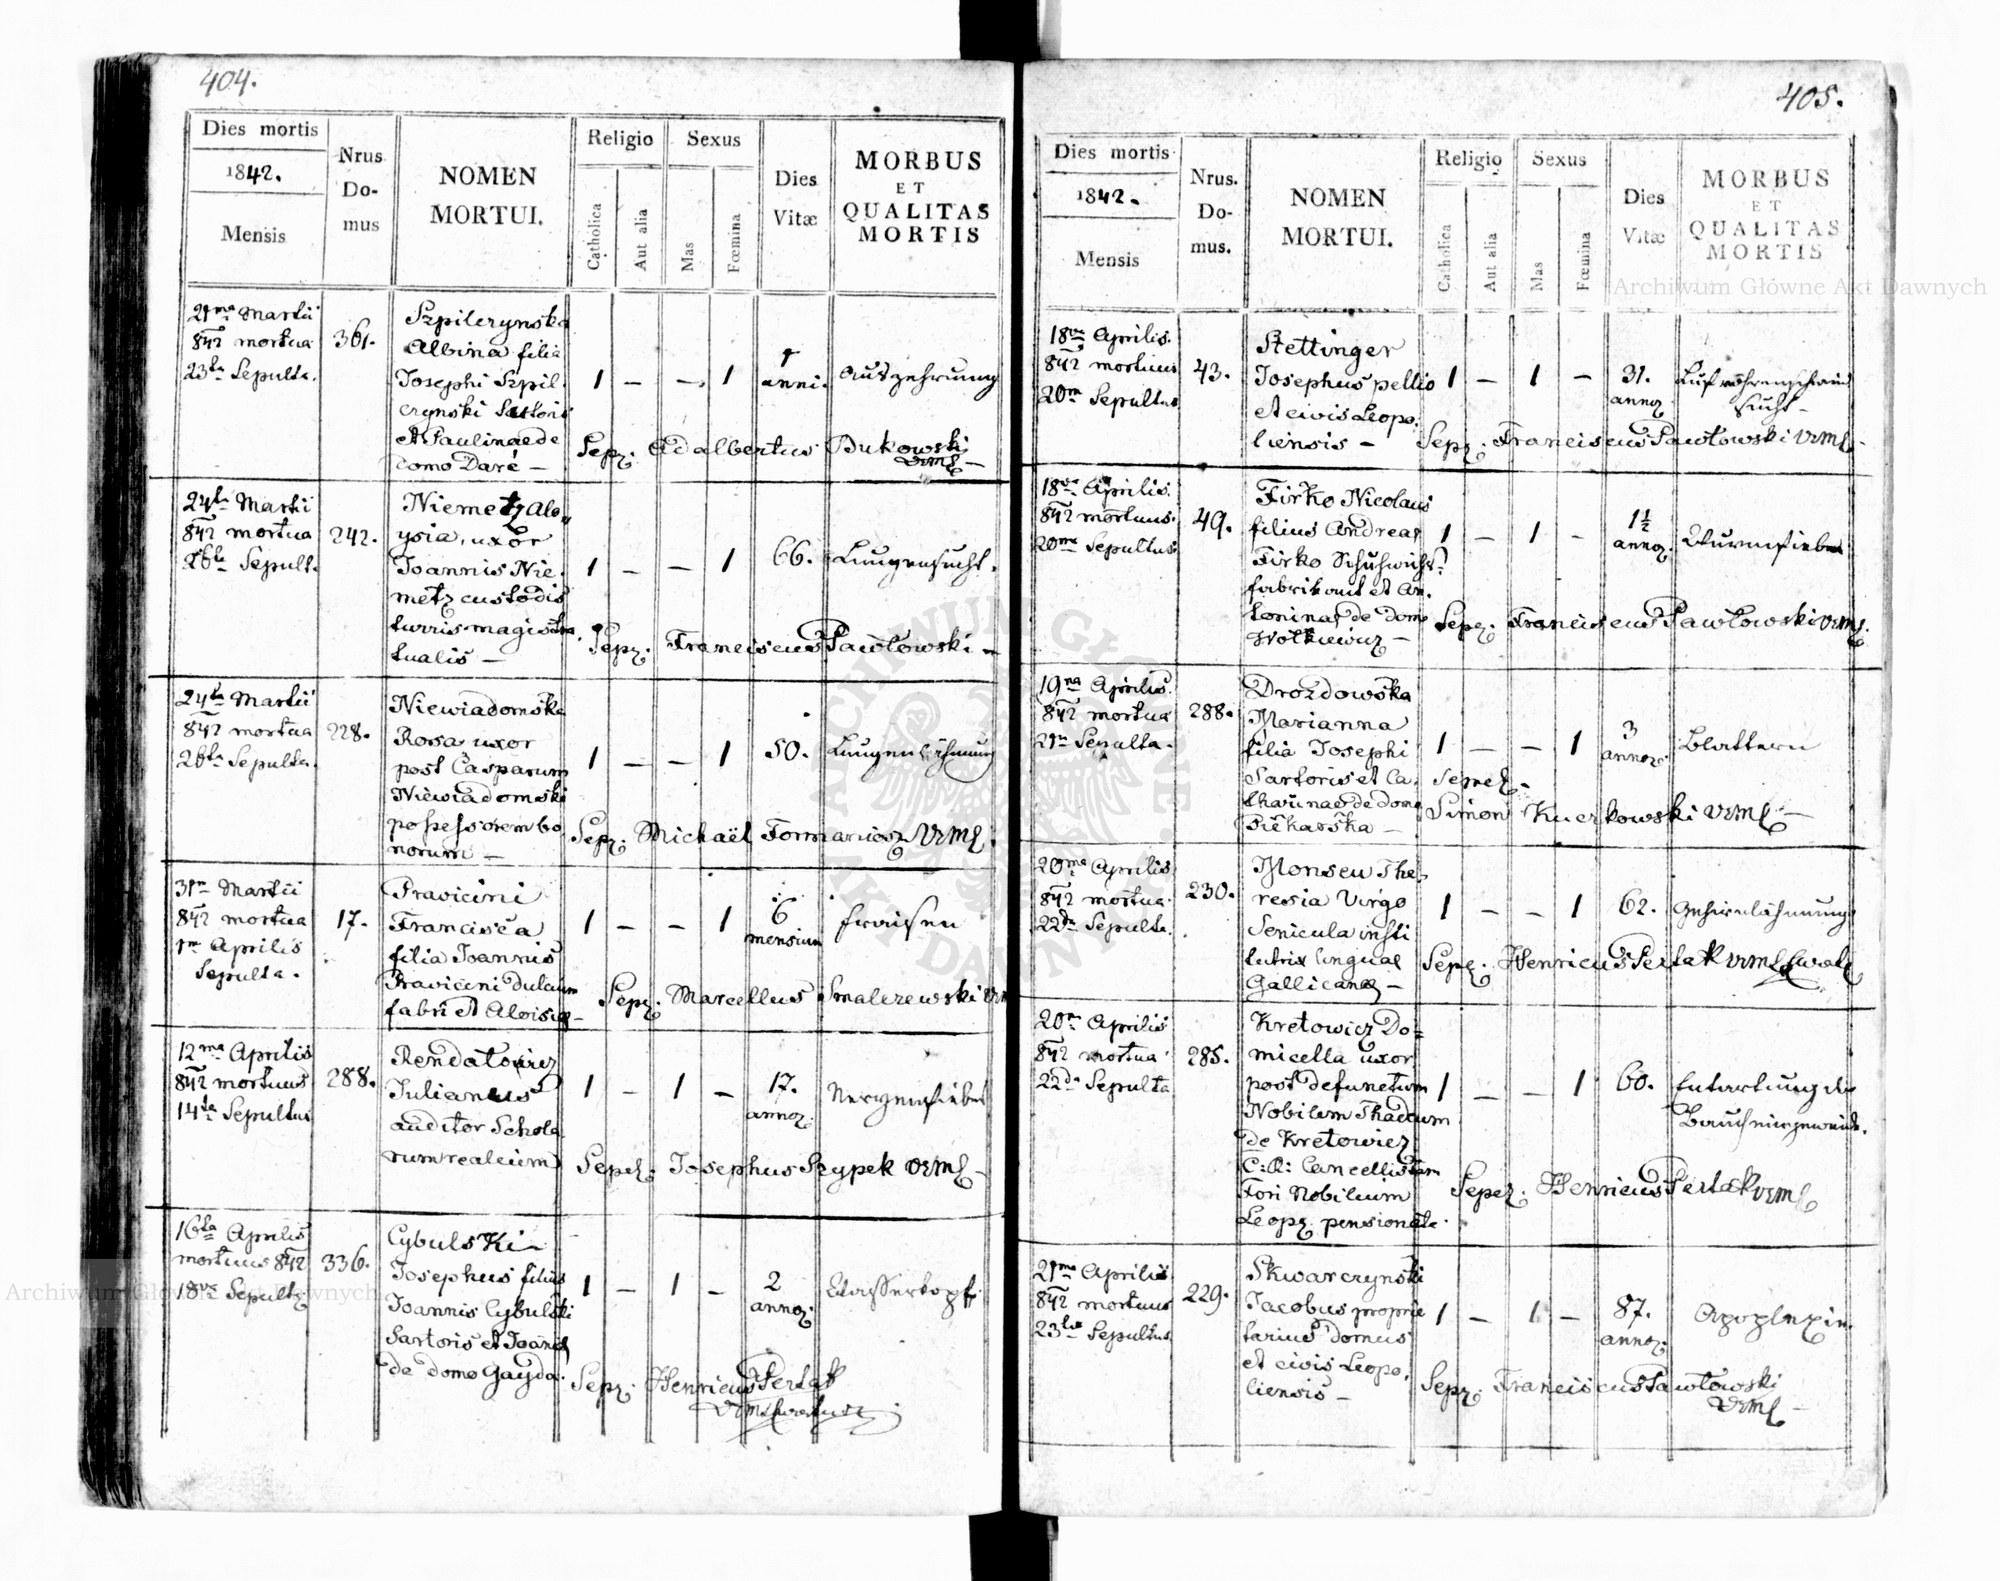 404.
Dies mortis
1842.
Mensis
Nrus
Do-
mus
NOMEN
MORTUI.
Religio
Catholica
Aut alia
Sexus
Mas
Fœmina
Dies
Vitæ
MORBUS
ET
QUALITAS
MORTIS
21ma Martii
842 mortua
23tia Sepulta.
361.
Szpilczynska
Albina filia
Josephi Szpil
czynski Sartoris
et Paulinae de
domo Daré –
1 – – 1
1
anni.
Auszehrung
Sepz. Adalbertus Bukowski
VrmL –
24ta Martii
842 mortua
26ta Sepult.
242.
Niemetz Alo-
ysia, uxor
Joannis Nie-
metz custodis
turris magistra
tualis –
1 – – 1
66.
Lungensucht.
Sepz. Franciscus Pawłowski –
24ta Martii
842 mortua
26ta Sepulta.
228.
Niewiadomska
Rosa uxor
post Casparum
Niewiadomski
possessorem bo
norum –
1 – – 1
50.
Lungenlähmung
Sepz. Michaël Formaniosz VrmL.
31ma Martii
842 mortua
1ma Aprilis
Sepulta.
17.
Pravicini
Francisca
filia Joannis
Pravicini dulcium
fabri et Aloisiæ –
1 – – 1
6
mensium
fraisen
Sepz. Marcellus Smalczewski Vrm
12ma Aprilis
842 mortuus
14ta Sepultus
288.
Rendatowicz
Julianus
auditor Schola
rum realium
1 – 1 –
17.
annoz.
Nervenfieber
Sepez. Josephus Szypek VrmL –
16ta Aprilis
mortuus 842
18va Sepultz
336.
Cybulski –
Josephus filius
Joannis Cybulski
Sartoris et Joannæ
de domo Gayda.
1 – 1 –
2
annoz.
Wasserkopf
Sepz. Henricus Perlak
405.
Dies mortis
1842.
Mensis
Nrus.
Do-
mus.
NOMEN
MORTUI.
Religio
Catholica
Aut alia
Sexus
Mas
Fœmina
Dies
Vitæ
MORBUS
ET
QUALITAS
MORTIS
18va Aprilis.
842 mortuus
20ma Sepultus
43.
Stettinger
Josephus pellio
et civis Leopo-
liensis –
1 – 1 –
31.
annoz
Luftröhrenschwind
sucht –
Sepz. Franciscus Pawłowski VrmL –
18va Aprilis.
842 mortuus.
20ma Sepultus.
49.
Firko Nicolaus
filius Andreæ
Firko Schuhwichs-
fabrikant et An-
toninae de domo
Wołkiewicz –
1 – 1 –
1½
annoz.
Wurmfieber
Sepz. Franciscus Pawłowski VrmL.
19na Aprilis.
842 mortua
21ma Sepulta.
288.
Drozdowska
Marianna
filia Josephi
Sartoris et Ca-
tharinae de domo
Piekarska –
1 – – 1
3
annoz.
Blattern
Sepez.
Simon Kuczkowski VrmL –
20ma Aprilis
842 mortua.
22da Sepulta.
230.
Monseu The-
resia Virgo
Senicula insti
tutrix linguae
Gallicanæ –
1 – – 1
62.
Gehirnlähmung
Sepz. Henricus Perlak VrmL
20ma Aprilis
842 mortua
22da Sepulta
285.
Kretowicz Do-
micella uxor
post defunctum
Nobilem Thadeum
de Kretowicz
C: R: Cancellistam
Fori Nobilium
Leopz. pensionate.
1 – – 1
60.
Entartung der
Baucheingeweide.
Sepez. Henricus Perlak VrmL
21ma Aprilis
842 mortuus
23tia Sepultus
229.
Skwarczynski
Jacobus proprie
tarius domus
et civis Leopo-
liensis –
1 – 1 –
87.
annoz.
Apoplexie.
Sepz. Franciscus Pawłowski
VrmL –
Archiwum Główne Akt Dawnych
Archiwum Główne Akt Dawnych
ARCHIWUM GŁÓWNE AKT DAWNYCH